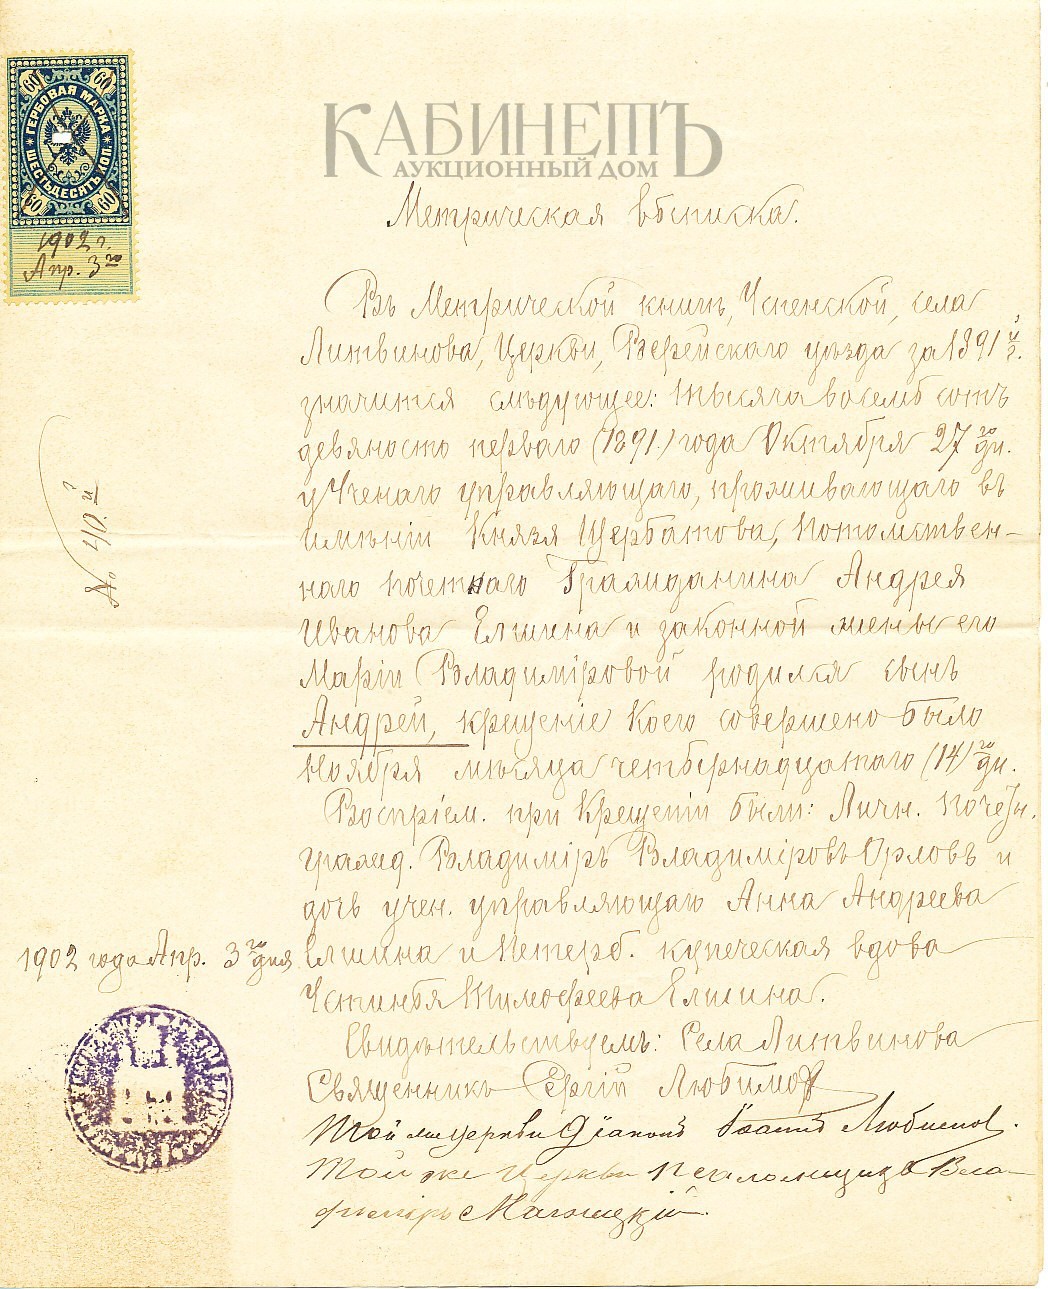 КАБИНЕТЪ
АУКЦИОННЫЙ ДОМ
60 60
ГЕРБОВАЯ МАРКА
ШЕСТЬДЕСЯТЪ КОП.
60 60
1902 г.
Апр. 3го
Метрическая выписка.
Въ Метрической книгѣ, Успенской, села
Литвинова, Церкви, Верейскаго уѣзда за 1891й г.
значится слѣдующее: тысяча восемь сотъ
девяносто перваго (1891) года Октября 27го дн.
у Ученаго управляющаго, проживающаго въ
имѣніи Князя Щербатова, Потомствен-
наго почетнаго Гражданина Андрея
Иванова Елшина и законной жены его
Маріи Владиміровой родился сынъ
Андрей, крещеніе коего совершено было
Ноября мѣсяца четырнадцатаго (14)го дн.
Воспріем. при Крещеніи были: Личн. почетн.
гражд. Владиміръ Владиміровъ Орловъ и
дочь учен. управляющаго Анна Андреева
Елшина и Петерб. купеческая вдова
Устинья Тимофеева Елшина.
Свидѣтельствуемъ: Села Литвинова
Священникъ Сергій Любимов
Той же церкви Діаконъ Іоаннъ Любимов.
Той же Церкви Псаломщикъ Вла-
диміръ
№ 40.й
1902 года Апр. 3го дня